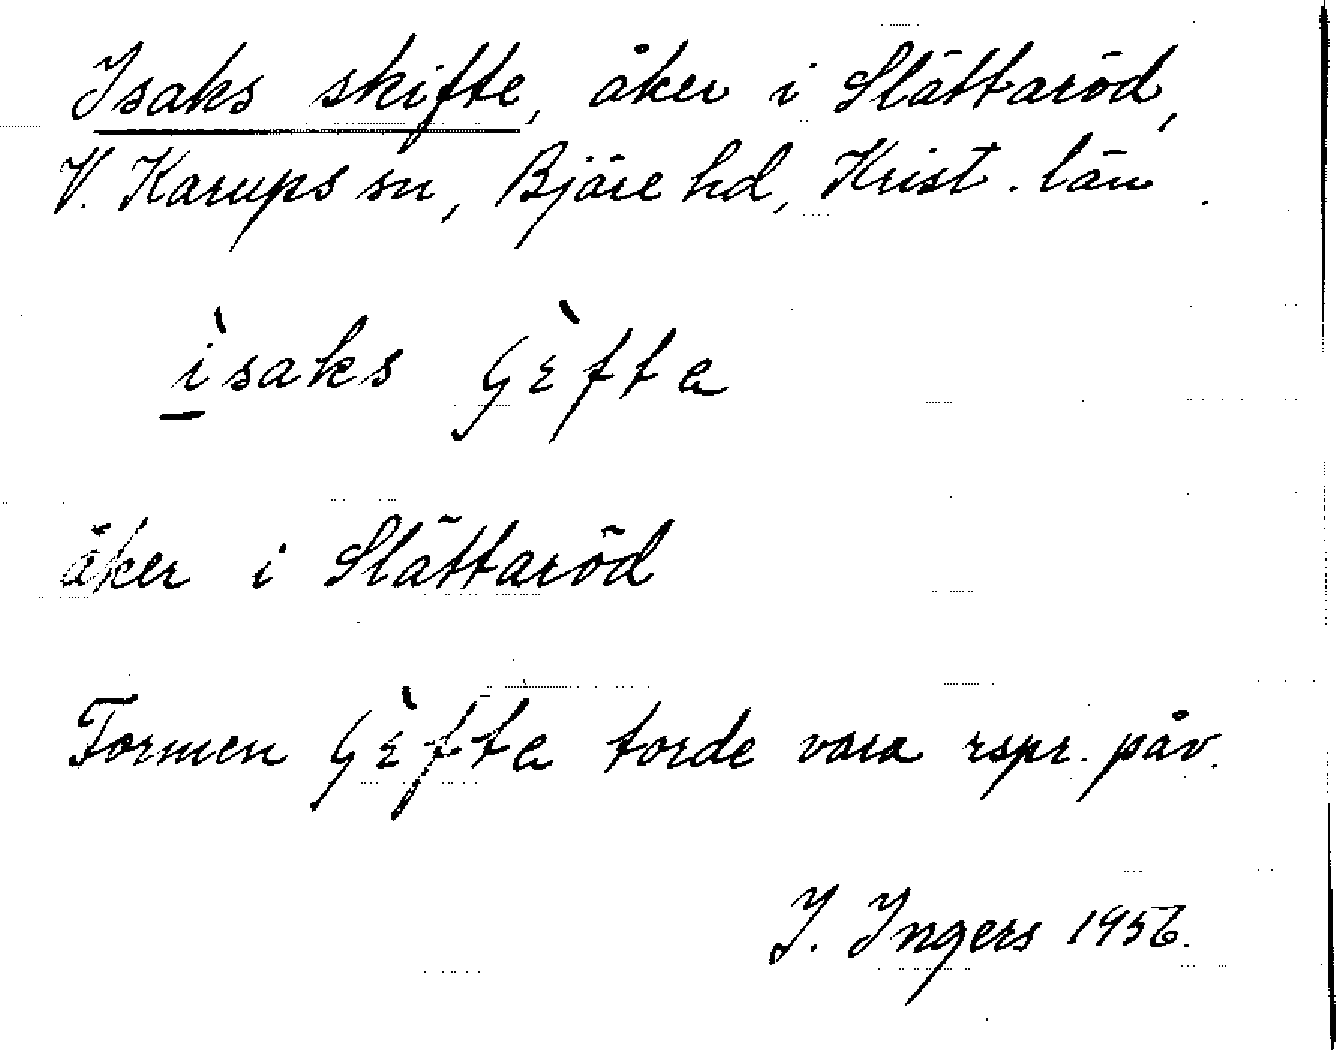 Isaks skifte, åker i Slättaröd,
V. Karups sn, Bjäre hd, Krist. län.
ìsaks ʃɛ̀fta
åker i Slättaröd
Formen ʃɛ̀fta torde vara rspr. påv.
I. Ingers 1956.